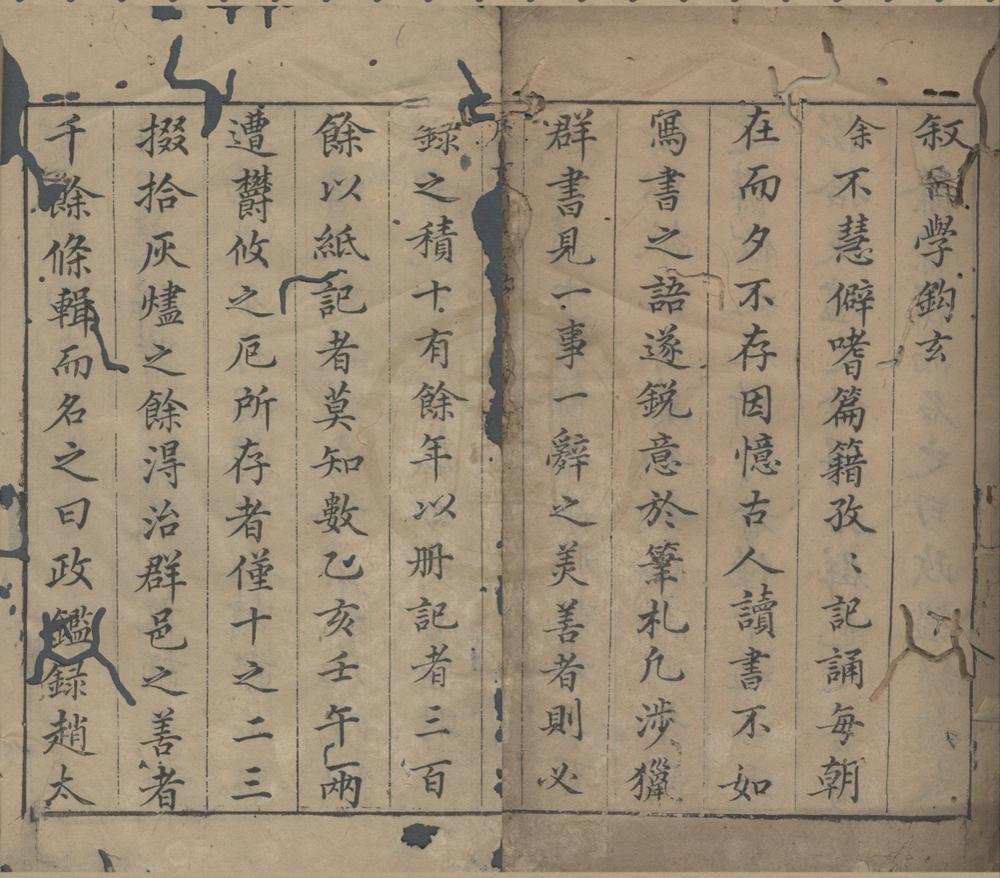 叙爲學鈎玄
余不慧僻嗜篇籍孜〻記誦每朝
在而夕不存因憶古人讀書不如
寫書之語遂鋭意於筆札凡涉獵
群書見一事一辭之美善者則必
録之積十有餘年以册記者三百
餘以紙記者莫知數乙亥壬午兩
遭欝攸之厄所存者僅十之二三
掇拾灰燼之餘淂治群邑之善者
千餘條輯而名之曰政鑑録趙太